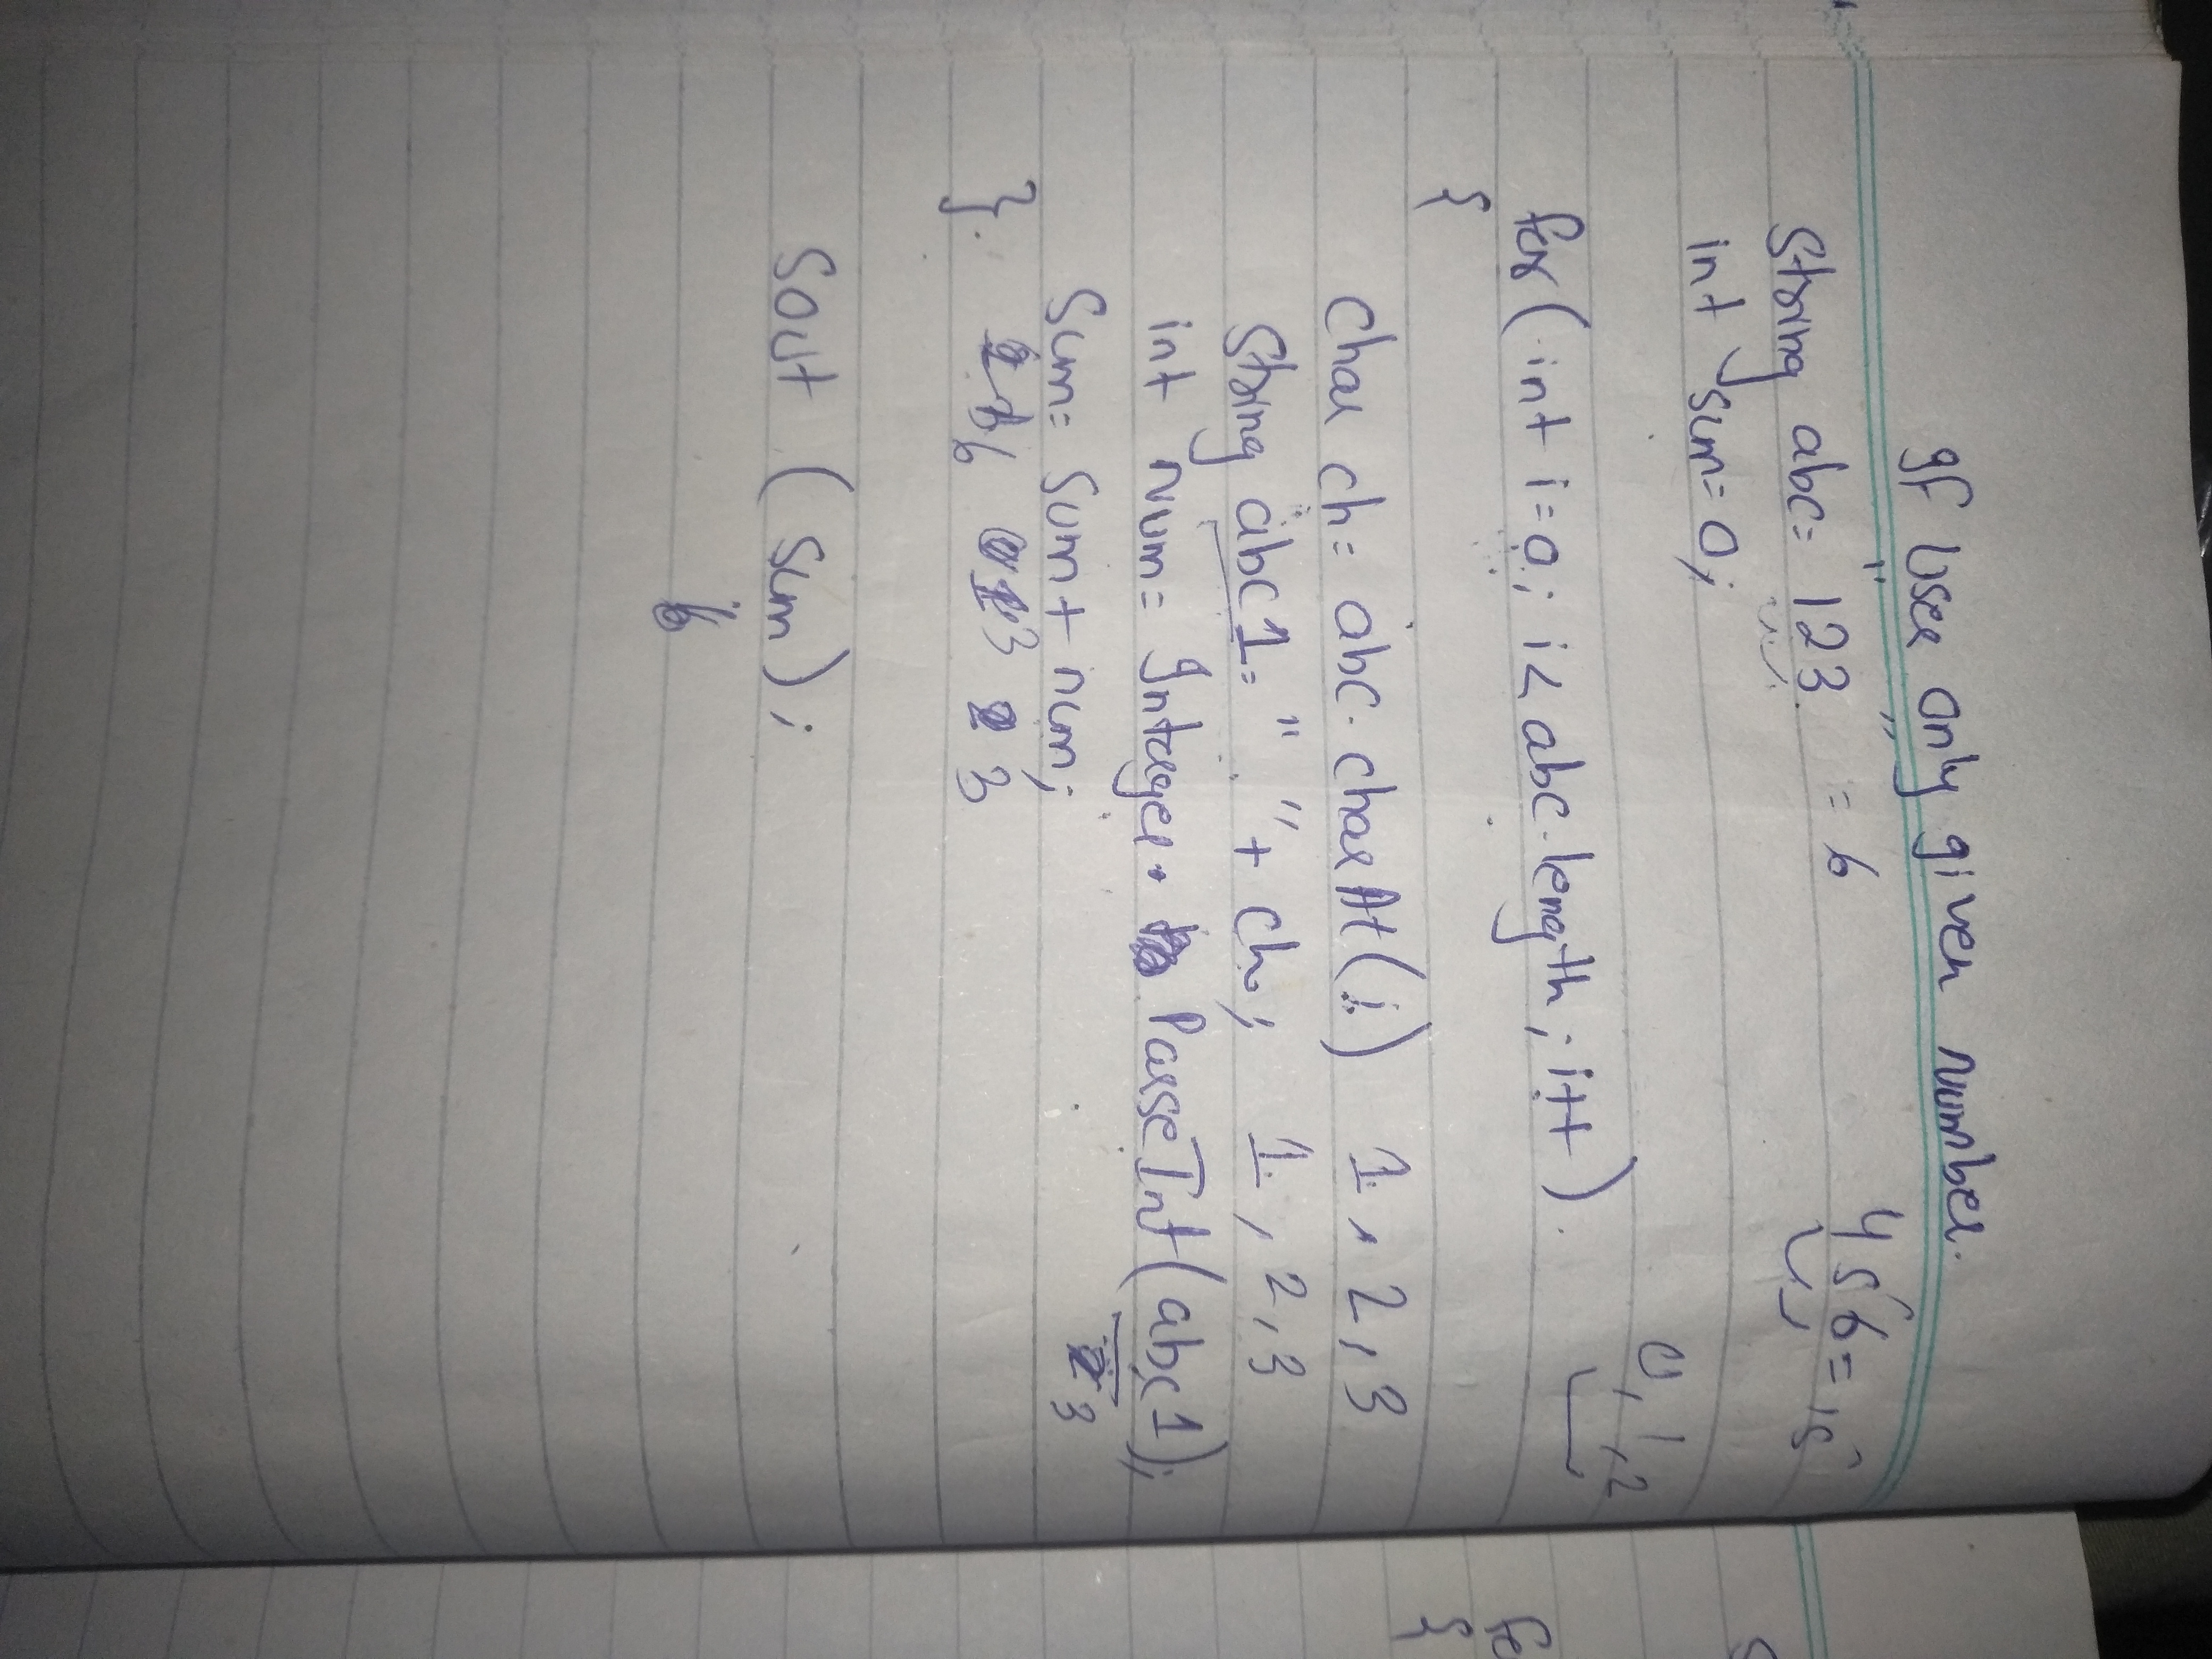 If user only given number.
" "
String abc = 123 = 6 456 = 15
int sum = 0;
0, 1, 2
for (int i = 0; i < abc.length; i++).
{
Char ch = abc.charAt(i) 1, 2, 3
String abc1 = " " + ch; 1, 2, 3
int num = Intager. ParseInt(abc1);
2 3
Sum = Sum + num;
6 0 1 3 2 3
}.
Sout (Sum);
6
for
{